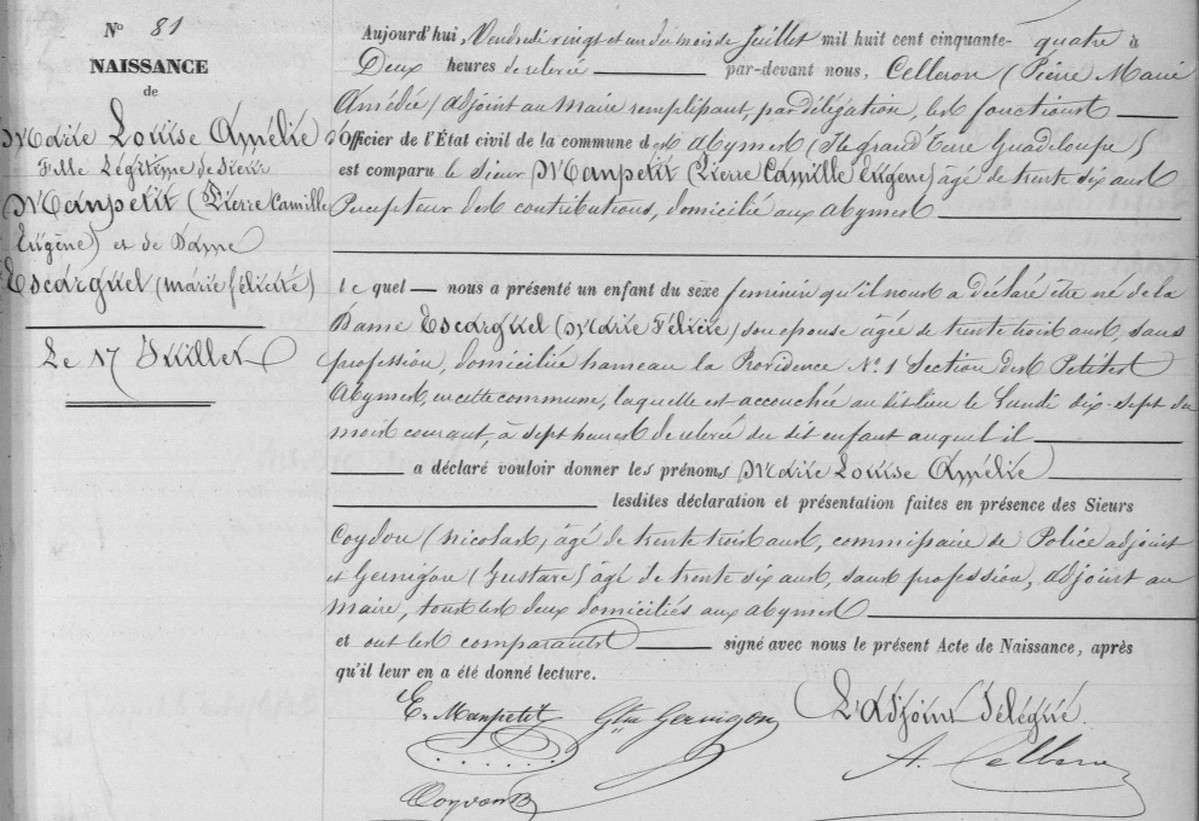 N° 81
NAISSANCE
de
Marie Louise Amélie
Fille Légitime de Sieur
Manpetit (Pierre Camille
Eugène) et de Dame
Escarguel (Marie Félicité)
Le 17 Juillet
Aujourd'hui, Vendredi vingt et un du mois de Juillet mil huit cent cinquante-quatre à
Deux heures de relevée par-devant nous, Celleron (Pierre Marie
Amédée) adjoint au Maire remplissant, par délégation, les fonctions
d'Officier de l'État civil de la commune des Abymes (Ile grand'Terre Guadeloupe)
est comparu le Sieur Manpetit (Pierre Camille Eugène) âgé de trente six ans
Percepteur des contributions, domicilié aux Abymes
lequel nous a présenté un enfant du sexe feminin qu'il nous a déclaré être né de la
Dame Escarguel (Marie Félicité) son epouse âgée de trente trois ans, sans
profession, domiciliée hameau la Providence N° 1 Section des Petites
Abymes, en cette commune, laquelle est accouchée au dit lieu le Lundi dix-sept du
mois courant, à sept heures de relevée du dit enfant auquel il
a déclaré vouloir donner les prénoms Marie Louise Amélie
lesdites déclaration et présentation faites en présence des Sieurs
Coydon (Nicolas) âgé de trente trois ans, commissaire de Police adjoint
et Gernigon (Gustave) âgé de trente six ans, sans profession, adjoint au
Maire, tous les deux domiciliés aux Abymes
et ont les comparants signé avec nous le présent Acte de Naissance, après
qu'il leur en a été donné lecture.
E. Manpetit Gve Gernigon L'Adjoint délégué.
A. Celleron